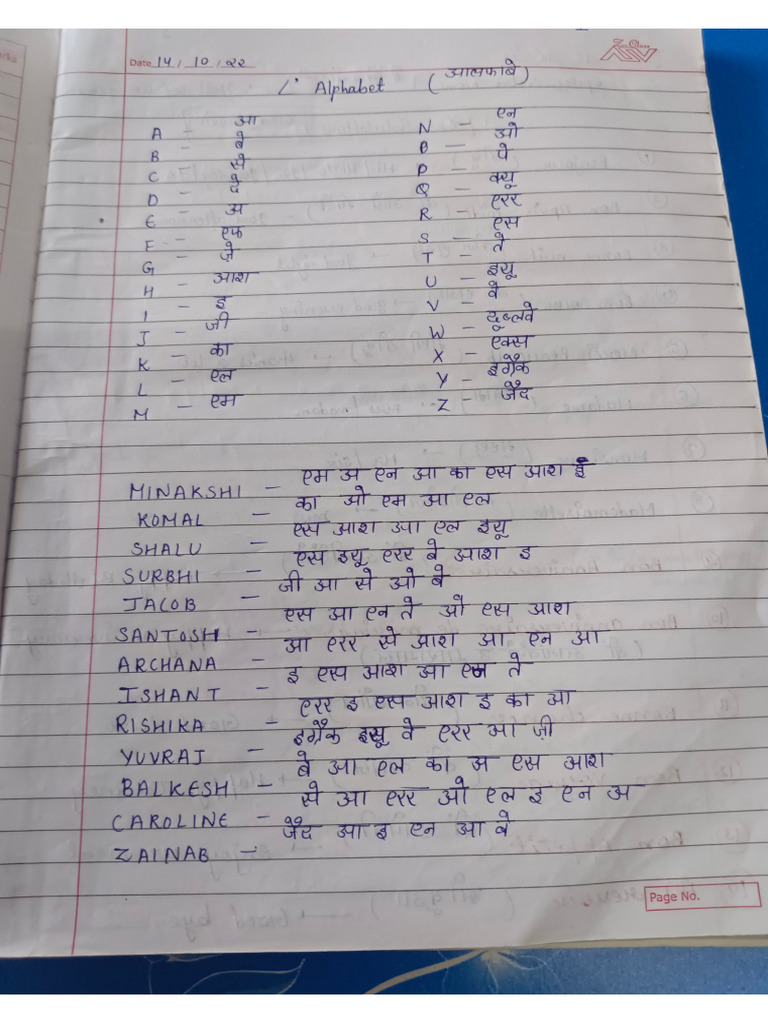 Date 14 / 10 / 22
L' Alphabet ( आलफाबे )
A – आ
B – बे
C – से
D – दे
E – अ
F – एफ
G – ज़े
H – आश
I – इ
J – जी
K – का
L – एल
M – एम
N – एन
O – ओ
P – पे
Q – क्यू
R – एरर
S – एस
T – ते
U – इयू
V – वे
W – दूब्लवे
X – एक्स
Y – इग्रैक
Z – जैद
MINAKSHI – एम अ एन आ का एस आश ई
KOMAL – का ओ एम आ एल
SHALU – एस आश आ एल इयू
SURBHI – एस इयू एरर बे आश इ
JACOB – जी आ से ओ बे
SANTOSH – एस आ एन ते ओ एस आश
ARCHANA – आ एरर से आश आ एन आ
ISHANT – इ एस आश आ एन ते
RISHIKA – एरर इ एस आश इ का आ
YUVRAJ – इग्रैक इयू वे एरर आ ज़ी
BALKESH – बे आ एल का अ एस आश
CAROLINE – से आ एरर ओ एल इ एन अ
ZAINAB – जैद आ इ एन आ बे
Page No.